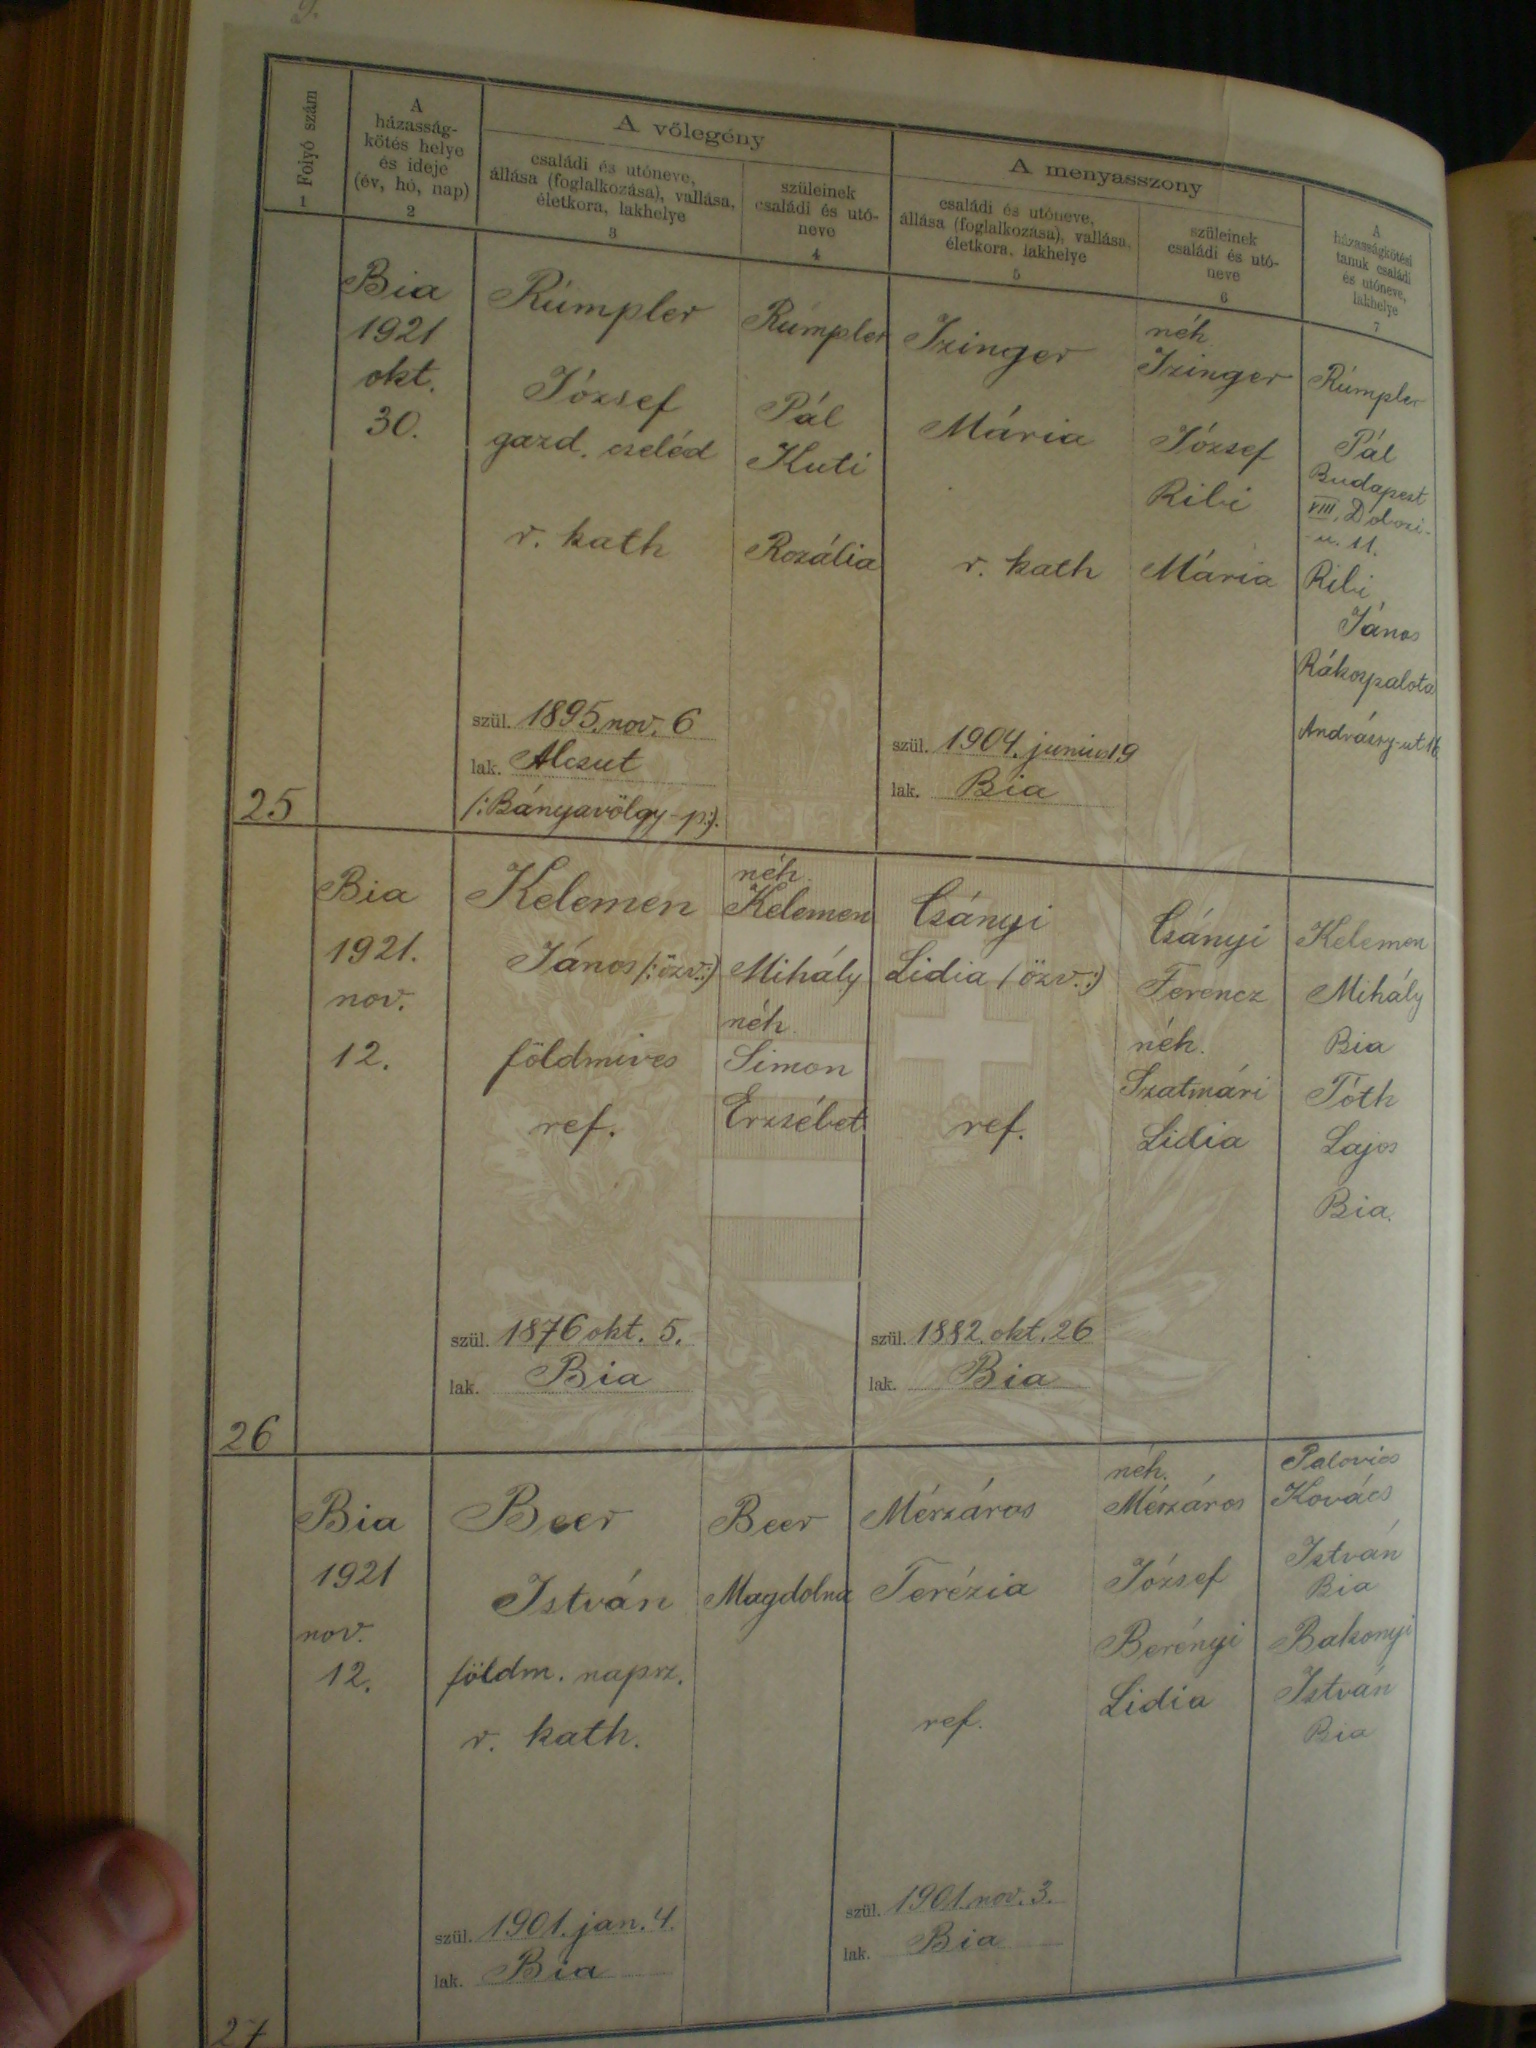 9.
Folyó szám
1
A
házasság-
kötés helye
és ideje
(év, hó, nap)
2
A vőlegény
családi és utóneve,
állása (foglalkozása), vallása,
életkora, lakhelye
3
szüleinek
családi és utó-
neve
4
A menyasszony
családi és utóneve,
állása (foglalkozása), vallása,
életkora, lakhelye
5
szüleinek
családi és utó-
neve
6
A
házasságkötési
tanuk családi
és utóneve,
lakhelye
7
25
Bia
1921
okt.
30.
Rümpler
József
gazd. cseléd
r. kath
szül. 1895. nov. 6
lak. Alcsut
(:Bányavölgy-p:).
Rümpler
Pál
Kuti
Rozália
Izinger
Mária
r. kath
szül. 1904. junius 19
lak. Bia
néh.
Izinger
József
Ribi
Mária
Rümpler
Pál
Budapest
VIII, Dobozi-
-u. 11.
Ribi
János
Rákospalota
Andrássy-ut 16
26
Bia
1921.
nov.
12.
Kelemen
János (:özv:)
földmives
ref.
szül. 1876 okt. 5.
lak. Bia
néh.
Kelemen
Mihály
néh.
Simon
Erzsébet
Csányi
Lidia (özv.:)
ref.
szül. 1882. okt. 26
lak. Bia
Csányi
Ferencz
néh.
Szatmári
Lidia
Kelemen
Mihály
Bia
Tóth
Lajos
Bia.
27
Bia
1921
nov.
12.
Beer
István
földm. napsz.
r. kath.
szül. 1901. jan. 4.
lak. Bia
Beer
Magdolna
Mészáros
Terézia
ref.
szül. 1901. nov. 3.
lak. Bia
néh.
Mészáros
József
Berényi
Lidia
Palovics
Kovács
István
Bia
Bakonyi
István
Bia